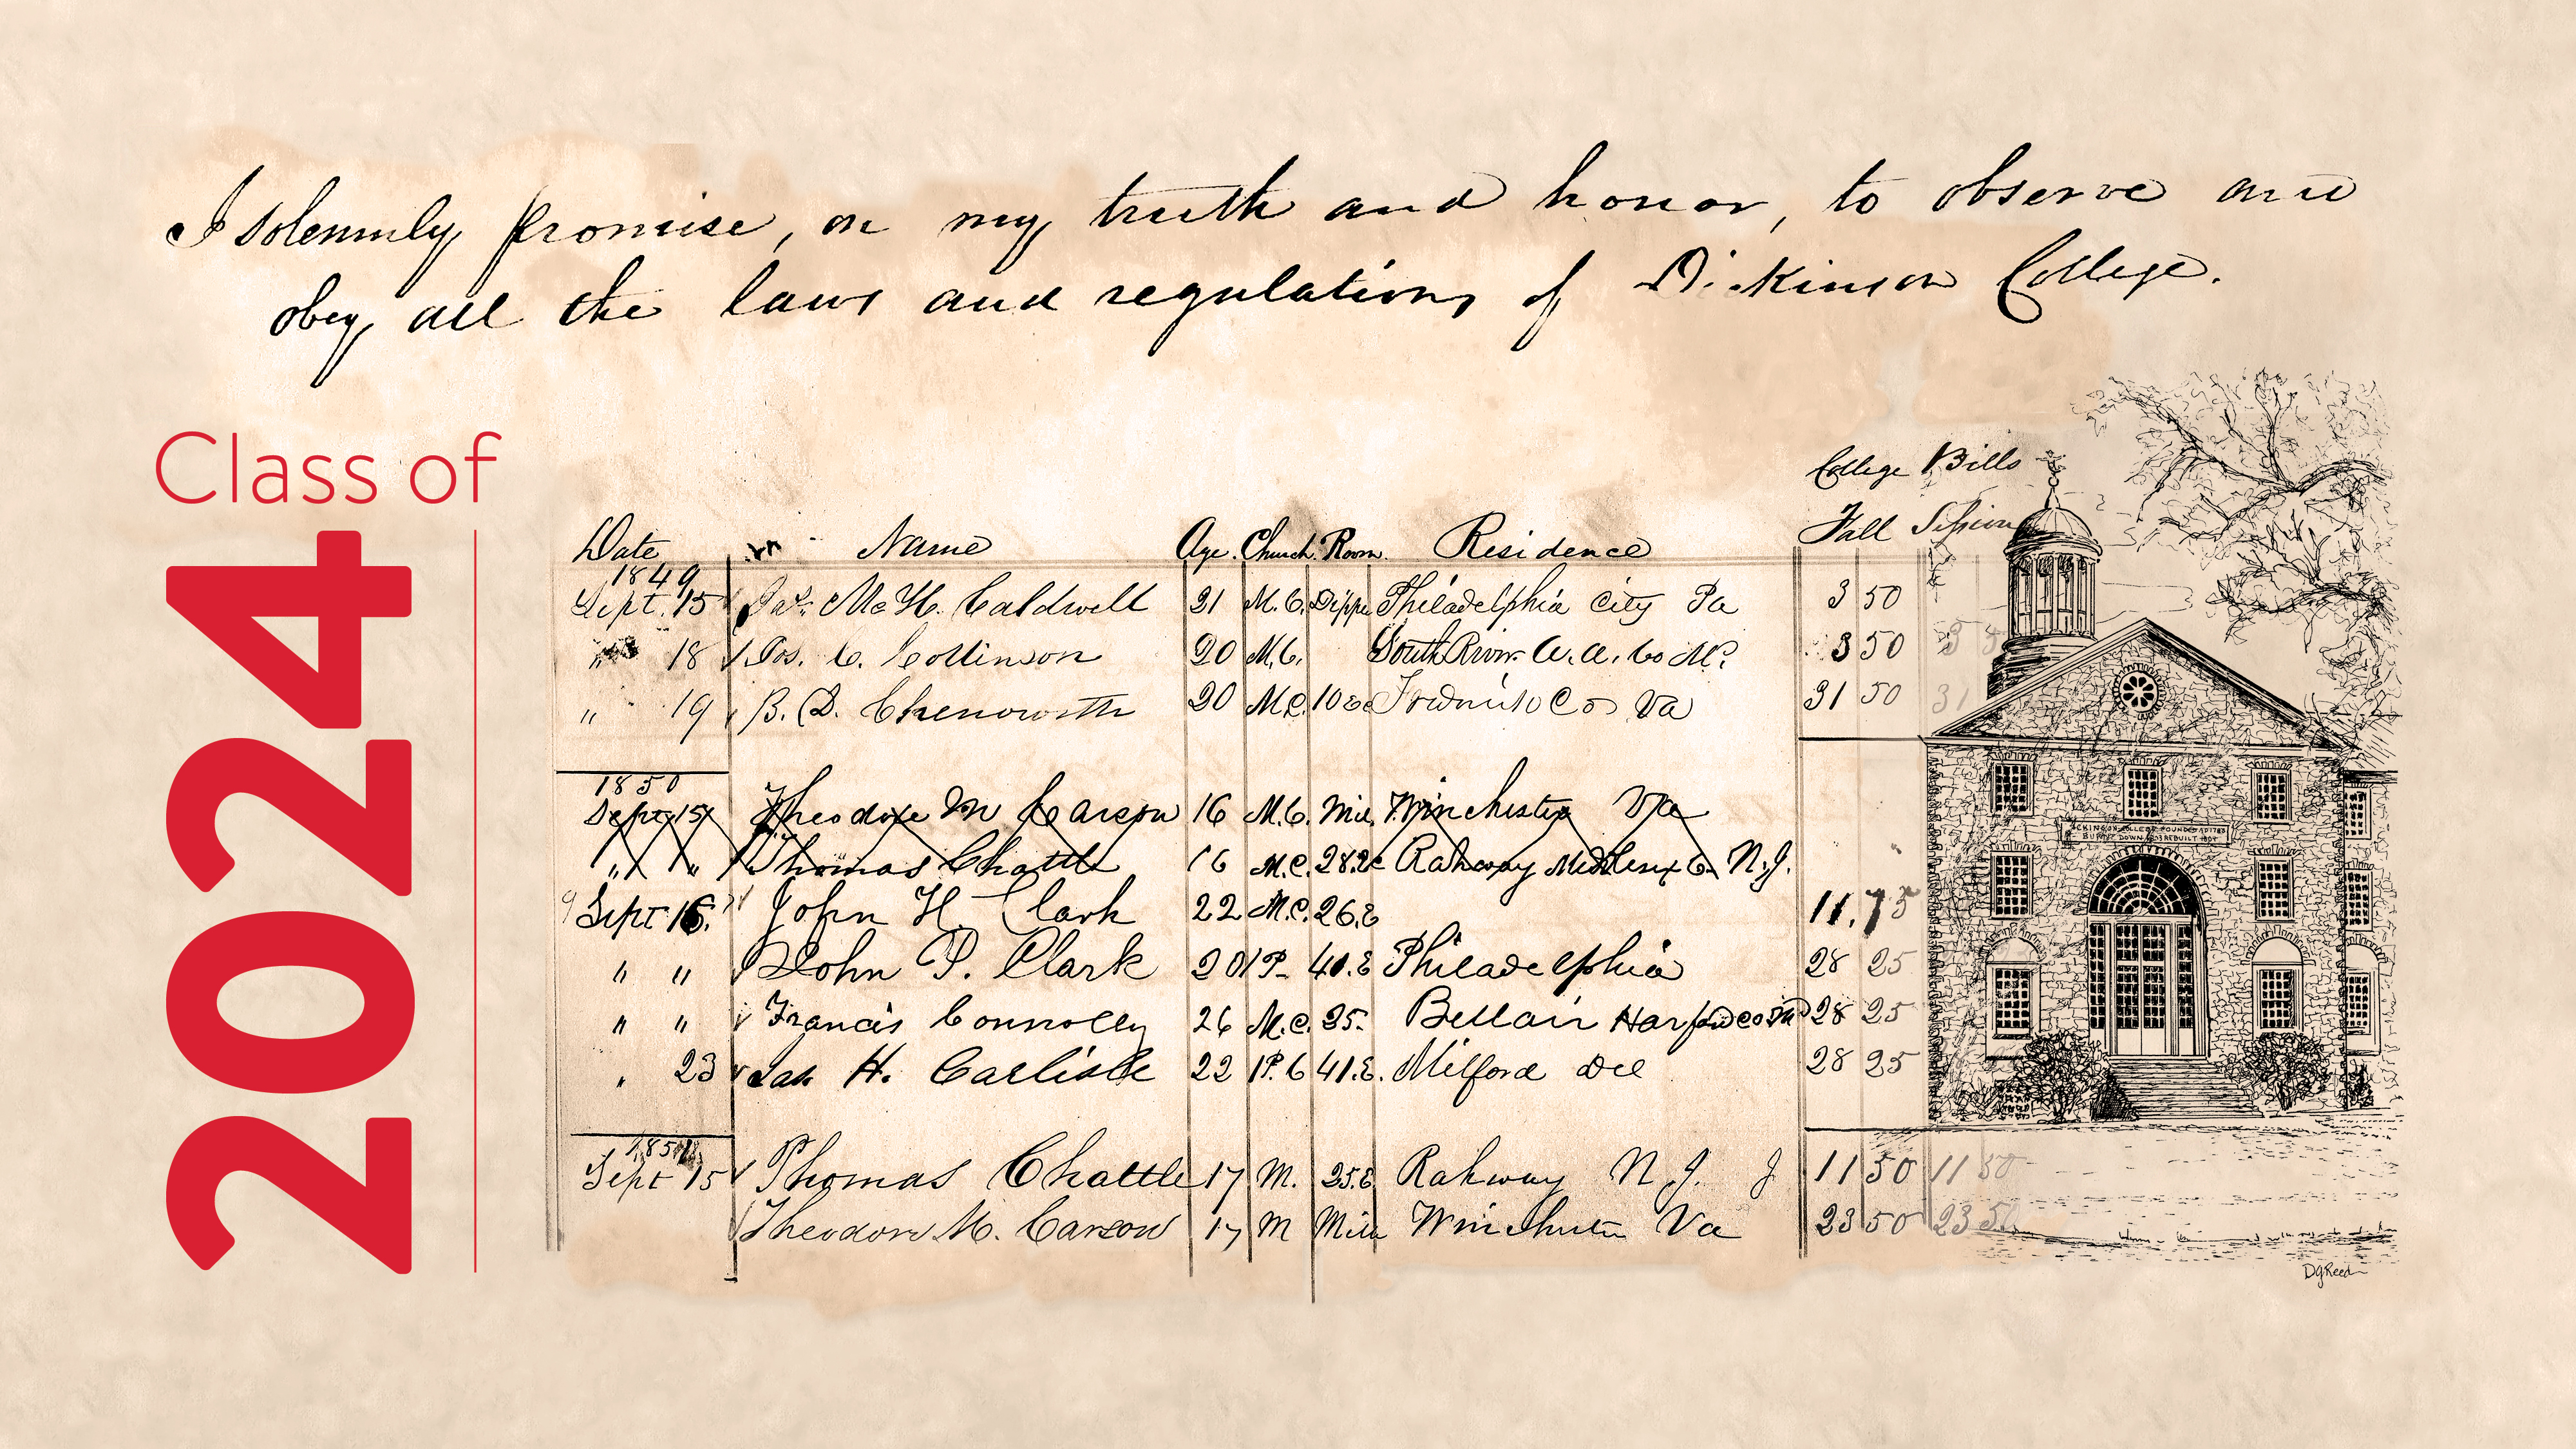 I solemnly promise, on my truth and honor, to observe and
obey all the laws and regulations of Dickinson College.
Class of
2024
College Bills
Fall Session
Date Name Age. Church. Room. Residence
1849
Sept. 15 Jas. McH. Caldwell 21 M.C. Philadelphia City Pa 3 50
" 18 Jos. C. Collinson 20 M.C. South River A.A. Co Md. 3 50
" 19 B. D. Chenowith 20 M.C. 10 Co Va 31 50 31
1850
Sept 15 Theodore M Carson 16 M.C. Winchester Va
" " Thomas Chattle 16 M.C. 28.E Rahway Middlesex Co. N.J.
9 Sept 16. John H. Clark 22 M.C. 26.E 11.75
" " John P. Clark 20 P- 40.E Philadelphia 28 25
" " Francis Connolly 26 M.C. 35. Bellair Harford co Md 28 25
" 23 Jas H. Carlisle 22 P.C 41.E. Milford Del 28 25
1851
Sept 15 Thomas Chattle 17 M. 25.E Rahway N.J. J 11 50 11 50
Theodore M. Carson 17 M Winchester Va 23 50 23 50
DICKINSON COLLEGE FOUNDED AD 1783
BURNED DOWN 1803 REBUILT 1804
DGReed